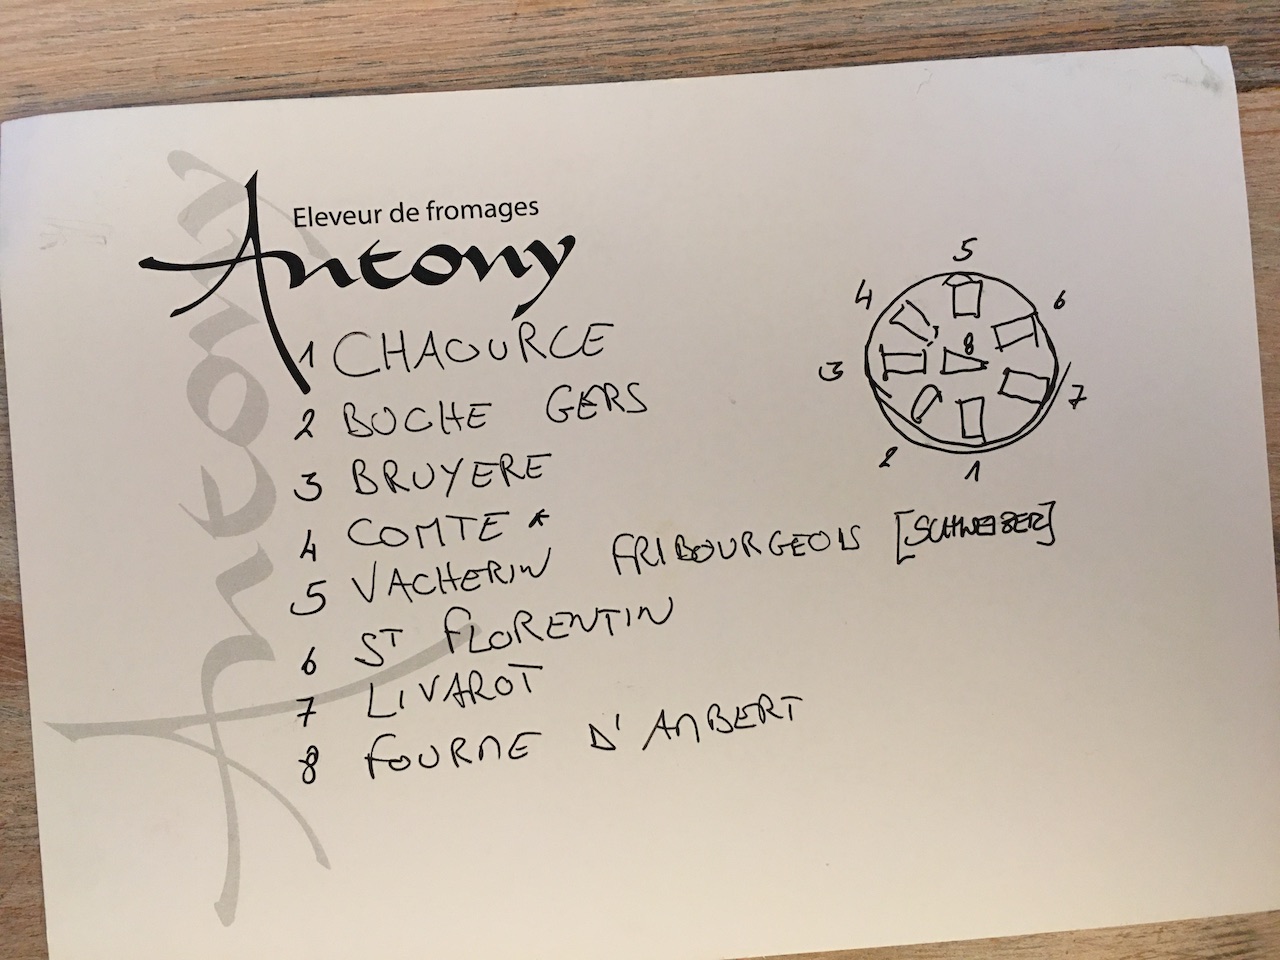 Eleveur de fromages
Antony
1 CHAOURCE
2 BUCHE GERS
3 BRUYERE
4 COMTE *
5 VACHERIN FRIBOURGEOIS [SCHWEIZER]
6 ST FLORENTIN
7 LIVAROT
8 FOURME D'AMBERT
5
4
6
8
3
7
2
1
Antony